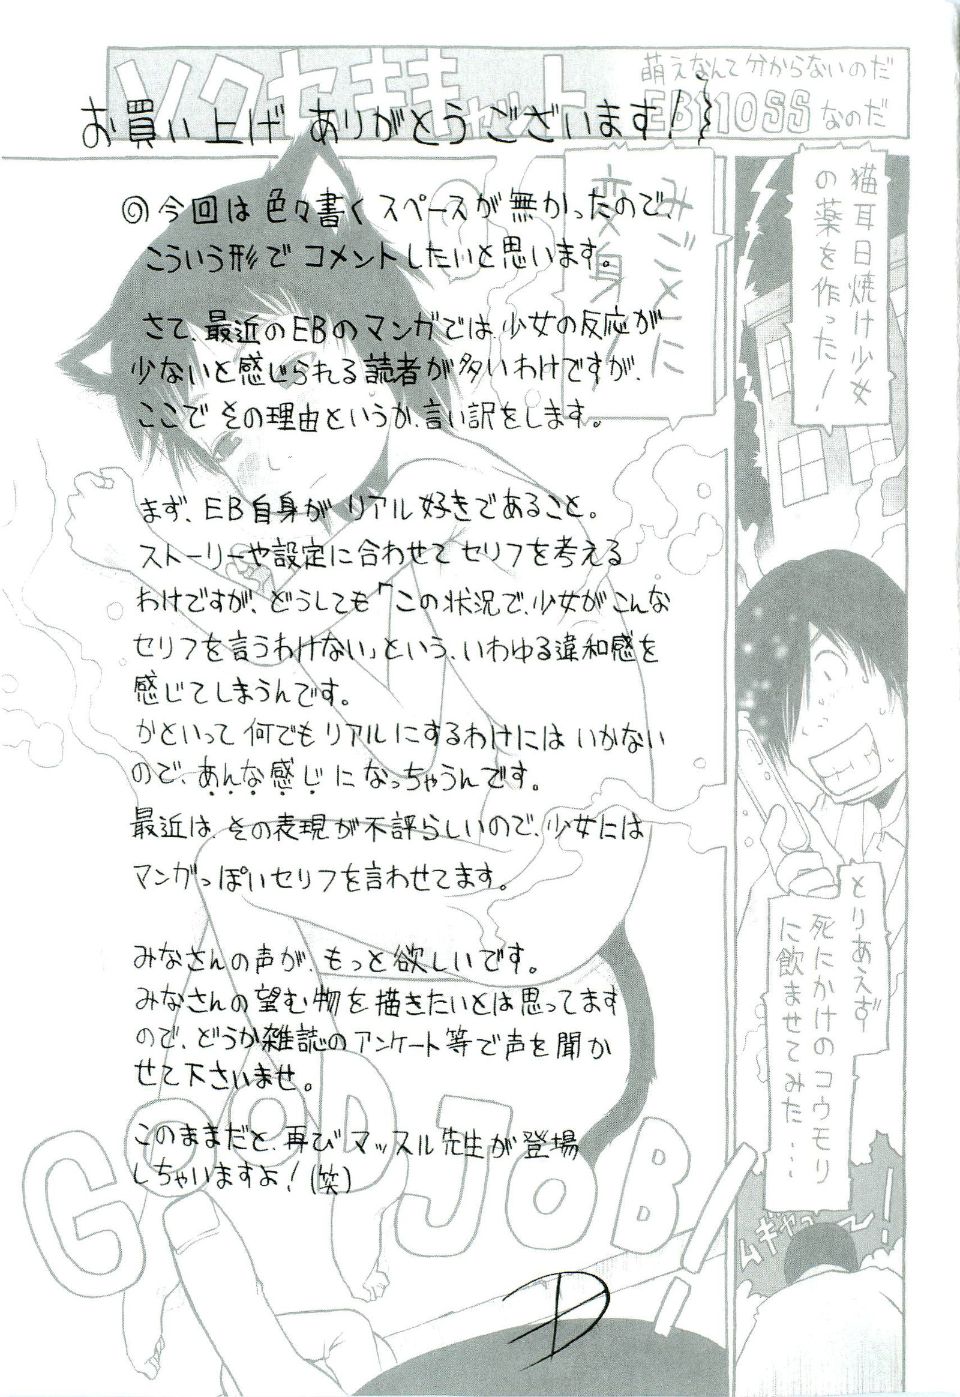 ソクセキキャット
萌えなんて分からないのだ
EB110SSなのだ
お買い上げ ありがとうございます!
◎今回は色々書くスペースが無かったので、
こういう形でコメントしたいと思います。
さて、最近のEBのマンガでは、少女の反応が
少ないと感じられる読者が多いわけですが、
ここでその理由というか、言い訳をします。
まず、EB自身がリアル好きであること。
ストーリーや設定に合わせてセリフを考える
わけですが、どうしても「この状況で、少女がこんな
セリフを言うわけない」という、いわゆる違和感を
感じてしまうんです。
かといって何でもリアルにするわけにはいかない
ので、あんな感じになっちゃうんです。
最近は、その表現が不評らしいので、少女には
マンガっぽいセリフを言わせてます。
みなさんの声が、もっと欲しいです。
みなさんの望む物を描きたいとは思ってます
ので、どうか雑誌のアンケート等で声を聞か
せて下さいませ。
このままだと、再びマッスル先生が登場
しちゃいますよ!(笑)
猫耳日焼け少女
の薬を作った!
とりあえず
死にかけのコウモリ
に飲ませてみた…
みごとに
変身
GOOD JOB!!